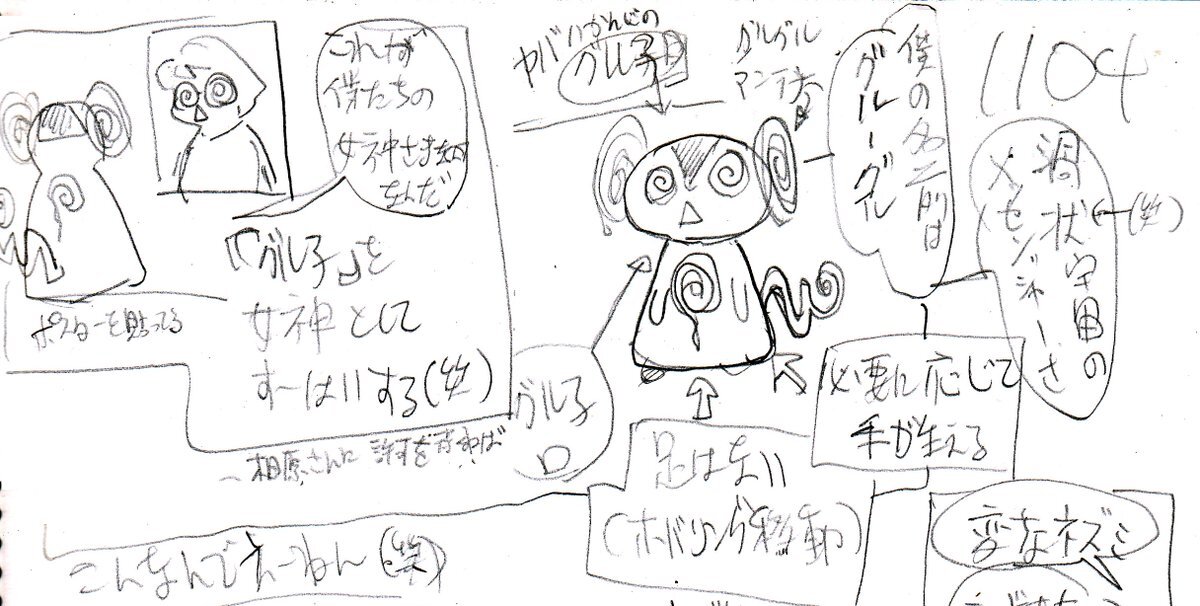 1104
ヤバいかんじの
グル子目
グルグル
マンテキ
僕の名前は
グルーグル
渦状宇宙の
メッセンジャーさ
(笑)
これが
僕たちの
女神さま
なんだ
「グル子」を
女神として
すーはいする(笑)
ポスターを貼ってる
相原さんに許すを
グル子
口
必要に応じて
手が生える
足はない
(ホバリング移動)
こんなんでえーねん(笑)
変なネズミ